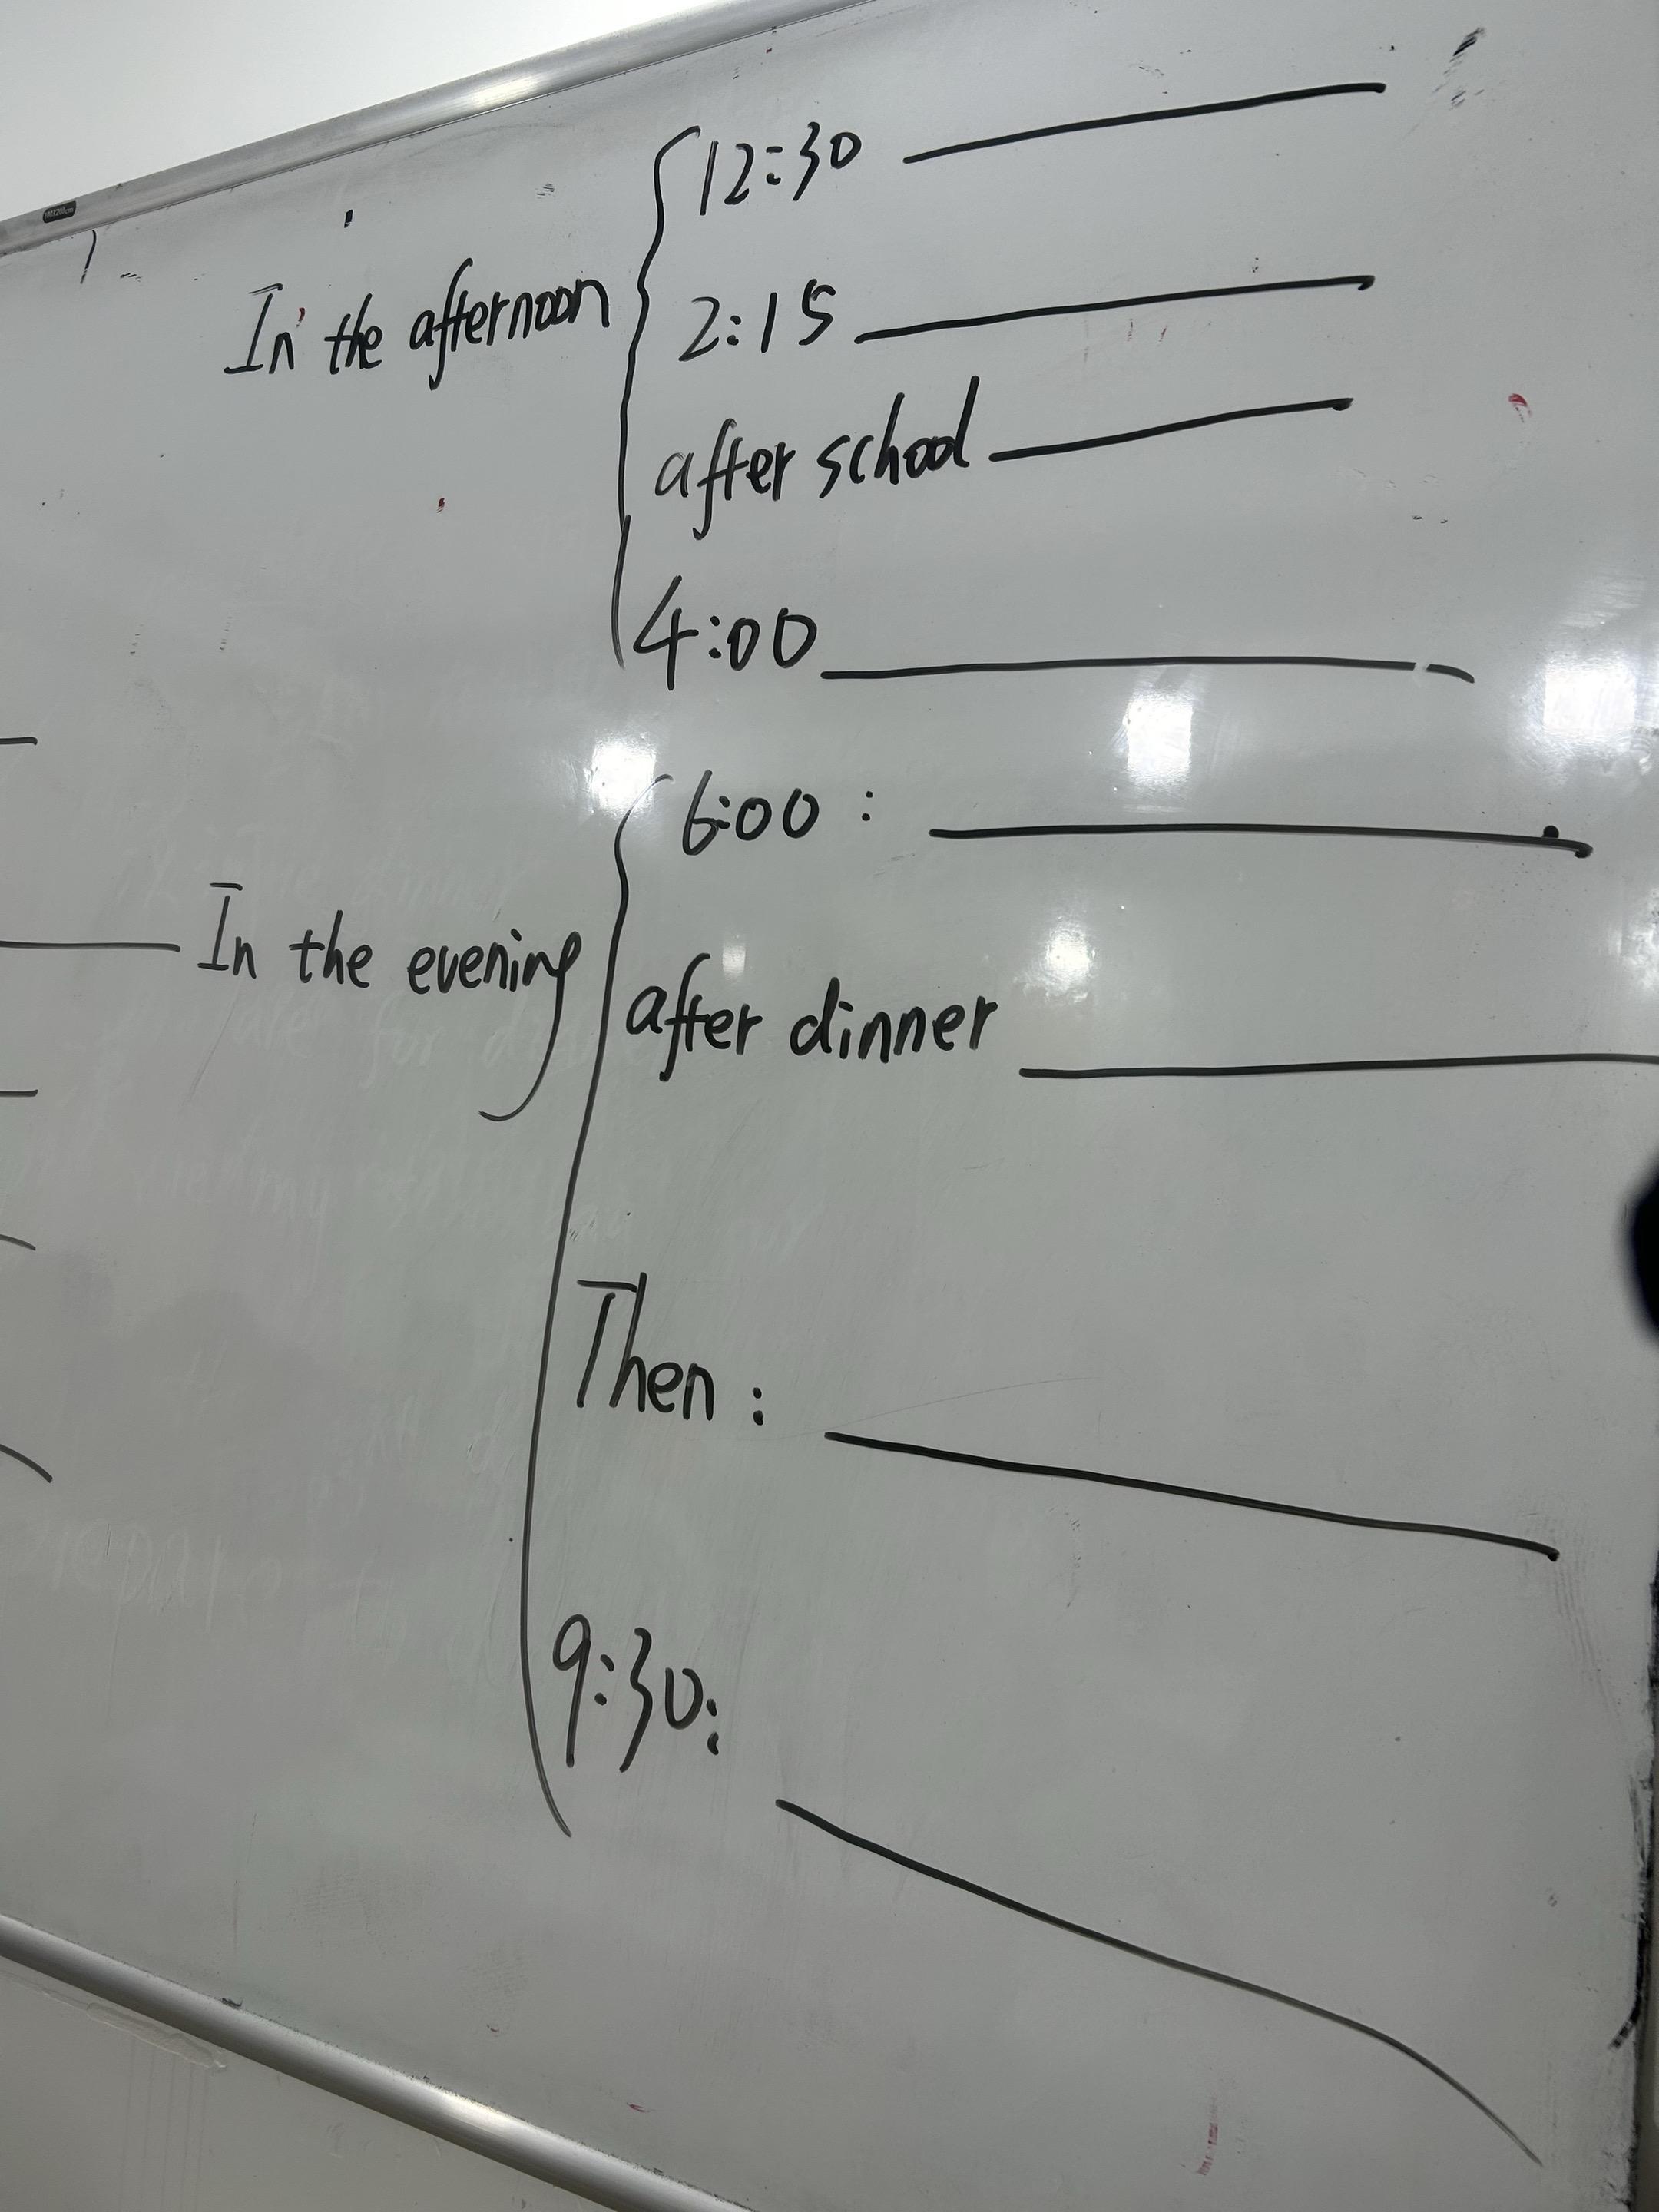 In the afternoon
12:30
2:15
after school
4:00
In the evening
6:00 :
after dinner
Then :
9:30: